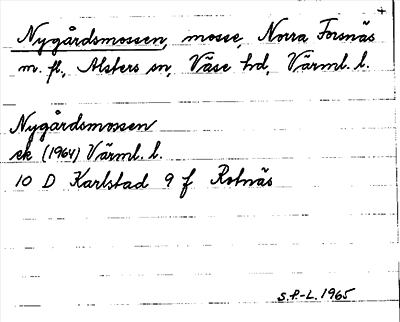 Nygårdsmossen, mosse, Norra Forsnäs
m. fl., Alsters sn, Väse hd, Värml. l.
Nygårdsmossen
ek (1964) Värml. l.
10 D Karlstad 9 f Rotnäs
S.P.-L. 1965